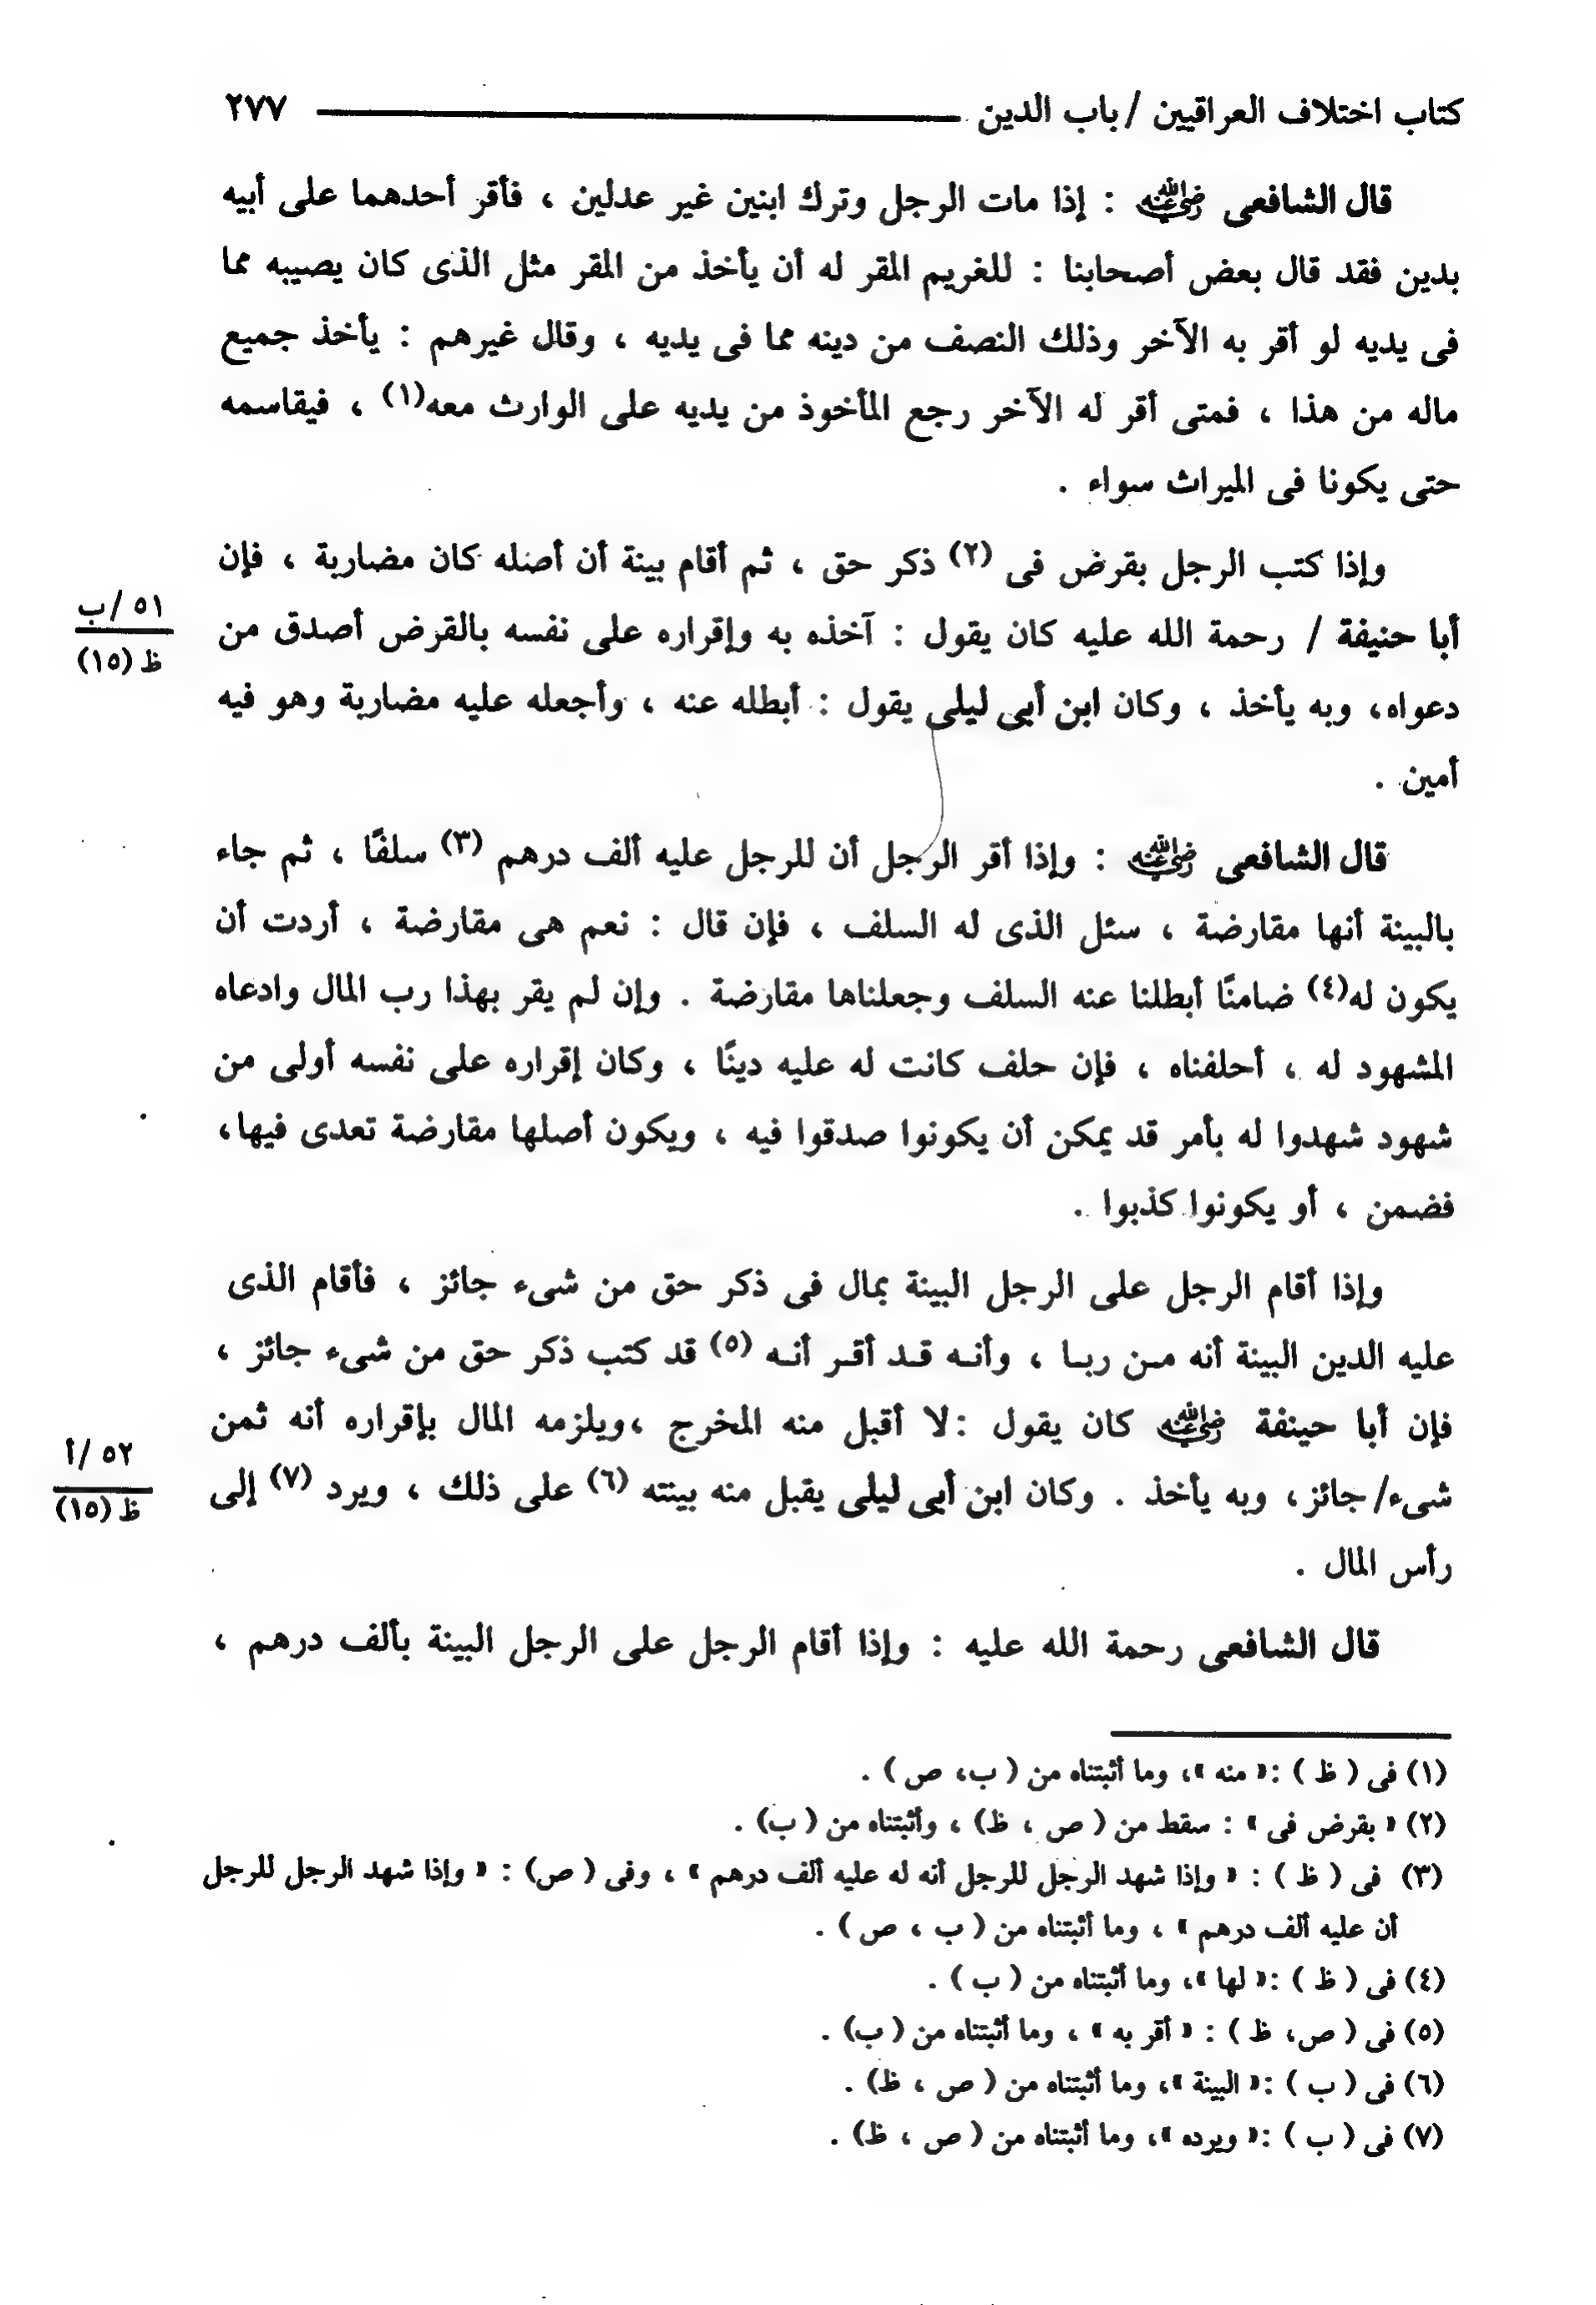 كتاب اختلاف العراقيين / باب الدين ٢٧٧
قال الشافعى رضي الله عنه : إذا مات الرجل وترك ابنين غير عدلين ، فأقر أحدهما على أبيه
بدين فقد قال بعض أصحابنا : للغريم المقر له أن يأخذ من المقر مثل الذى كان يصيبه مما
فى يديه لو أقر به الآخر وذلك النصف من دينه مما فى يديه ، وقال غيرهم : يأخذ جميع
ماله من هذا ، فمتى أقر له الآخر رجع المأخوذ من يديه على الوارث معه(١) ، فيقاسمه
حتى يكونا فى الميراث سواء .
وإذا كتب الرجل بقرض فى (٢) ذكر حق ، ثم أقام بينة أن أصله كان مضاربة ، فإن
أبا حنيفة / رحمة الله عليه كان يقول : آخذه به وإقراره على نفسه بالقرض أصدق من
٥١ /ب
ظ (١٥)
دعواه، وبه يأخذ ، وكان ابن أبى ليلى يقول : أبطله عنه ، وأجعله عليه مضاربة وهو فيه
أمين .
قال الشافعى رضي الله عنه : وإذا أقر الرجل أن للرجل عليه ألف درهم (٣) سلفًا ، ثم جاء
بالبينة أنها مقارضة ، سئل الذى له السلف ، فإن قال : نعم هى مقارضة ، أردت أن
يكون له(٤) ضامنًا أبطلنا عنه السلف وجعلناها مقارضة . وإن لم يقر بهذا رب المال وادعاه
المشهود له ، أحلفناه ، فإن حلف كانت له عليه دينًا ، وكان إقراره على نفسه أولى من
شهود شهدوا له بأمر قد يمكن أن يكونوا صدقوا فيه ، ويكون أصلها مقارضة تعدى فيها،
فضمن ، أو يكونوا كذبوا .
وإذا أقام الرجل على الرجل البينة بمال فى ذكر حق من شىء جائز ، فأقام الذى
عليه الدين البينة أنه من ربا ، وأنه قد أقر أنه (٥) قد كتب ذكر حق من شىء جائز ،
فإن أبا حينفة رضي الله عنه كان يقول :لا أقبل منه المخرج ،ويلزمه المال بإقراره أنه ثمن
شىء/ جائز، وبه يأخذ . وكان ابن أبى ليلى يقبل منه بينته (٦) على ذلك ، ويرد (٧) إلى
٥٢ /أ
ظ (١٥)
رأس المال .
قال الشافعى رحمة الله عليه : وإذا أقام الرجل على الرجل البينة بألف درهم ،
(١) فى ( ظ ) :« منه »، وما أثبتناه من ( ب، ص ) .
(٢) « بقرض فى » : سقط من ( ص ، ظ) ، وأثبتناه من ( ب) .
(٣) فى ( ظ ) : « وإذا شهد الرجل للرجل أنه له عليه ألف درهم » ، وفى ( ص) : « وإذا شهد الرجل للرجل
أن عليه ألف درهم » ، وما أثبتناه من ( ب ، ص ) .
(٤) فى ( ظ ) :« لها »، وما أثبتناه من ( ب ) .
(٥) فى ( ص، ظ ) : « أقر به » ، وما أثبتناه من ( ب) .
(٦) فى ( ب ) :« البينة »، وما أثبتناه من ( ص ، ظ) .
(٧) فى ( ب ) :« ويرده »، وما أثبتناه من ( ص ، ظ) .